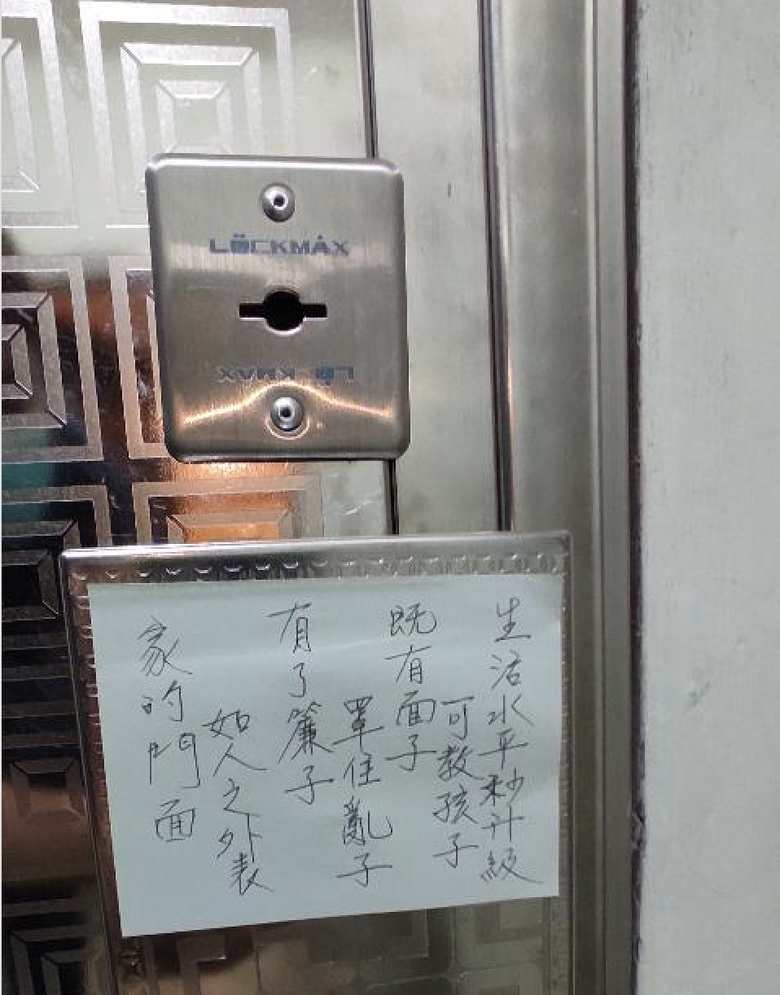 LOCKMAX
LO KMAX
家的門面
如人之外表
有了簾子
罩住亂子
既有面子
可教孩子
生活水平秒升級